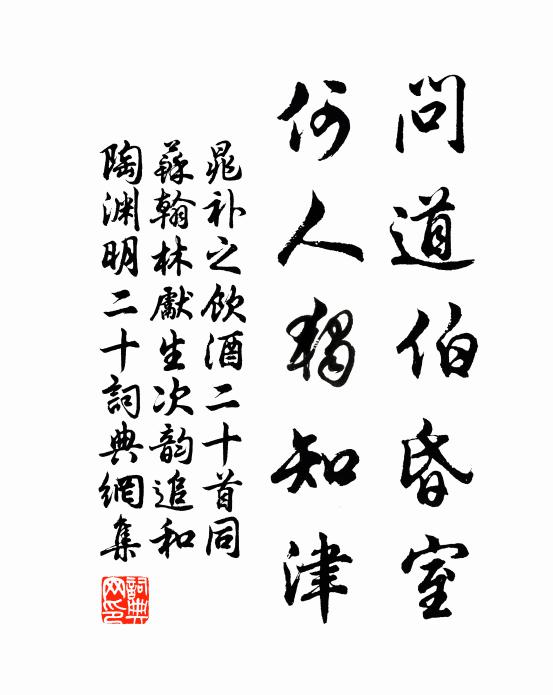 問道伯昏室
何人獨知津
晁補之飲酒二十首同
蘇翰林獻生次韵追和
陶渊明二十詞典網集
詞典网印